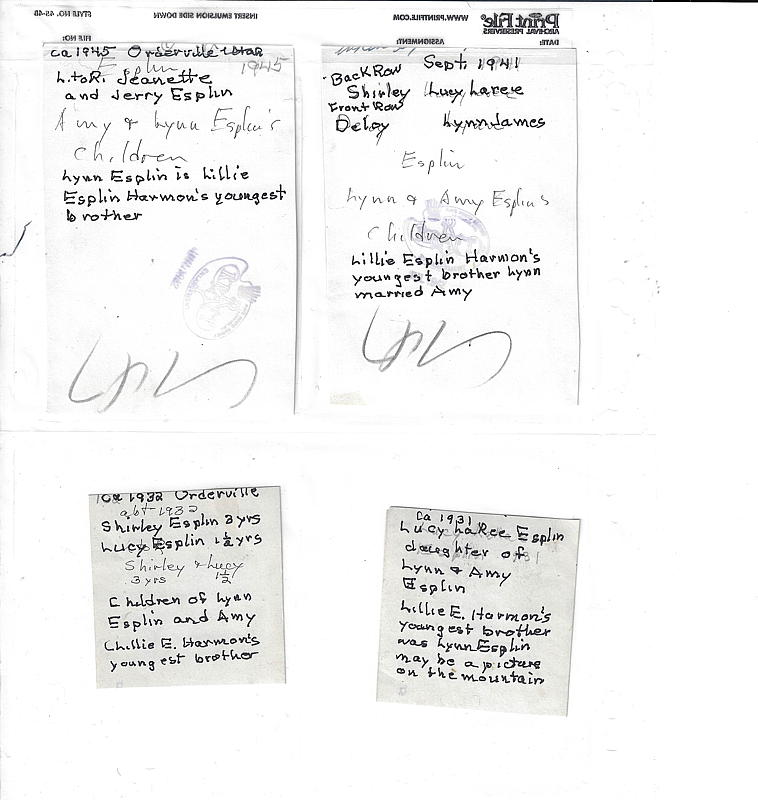 STYLE NO. 45-4B
INSERT EMULSION SIDE DOWN
WWW.PRINTFILE.COM
Print File
ARCHIVAL PRESERVERS
FILE NO:
ASSIGNMENT:
DATE:
ca 1945 Orderville Utah
Esplin 1945
L.toR. Jeanette
and Jerry Esplin
Amy & Lynn Esplin's
Children
Lynn Esplin is Lillie
Esplin Harmon's youngest
brother
Sept. 1941
Back Row
Shirley Lucy Laree
Front Row
Deloy Lynn James
Esplin
Lynn & Amy Esplin's
Children
Lillie Esplin Harmon's
youngest brother Lynn
married Amy
Ca 1932 Orderville
abt 1932
Shirley Esplin 3 yrs
Lucy Esplin 1½ yrs
Shirley & Lucy
3 yrs 1½
Children of Lynn
Esplin and Amy
Chillie E. Harmon's
youngest brother
ca 1931
Lucy LaRee Esplin
daughter of
Lynn & Amy
Esplin
Lillie E. Harmon's
youngest brother
was Lynn Esplin
may be a picture
on the mountain